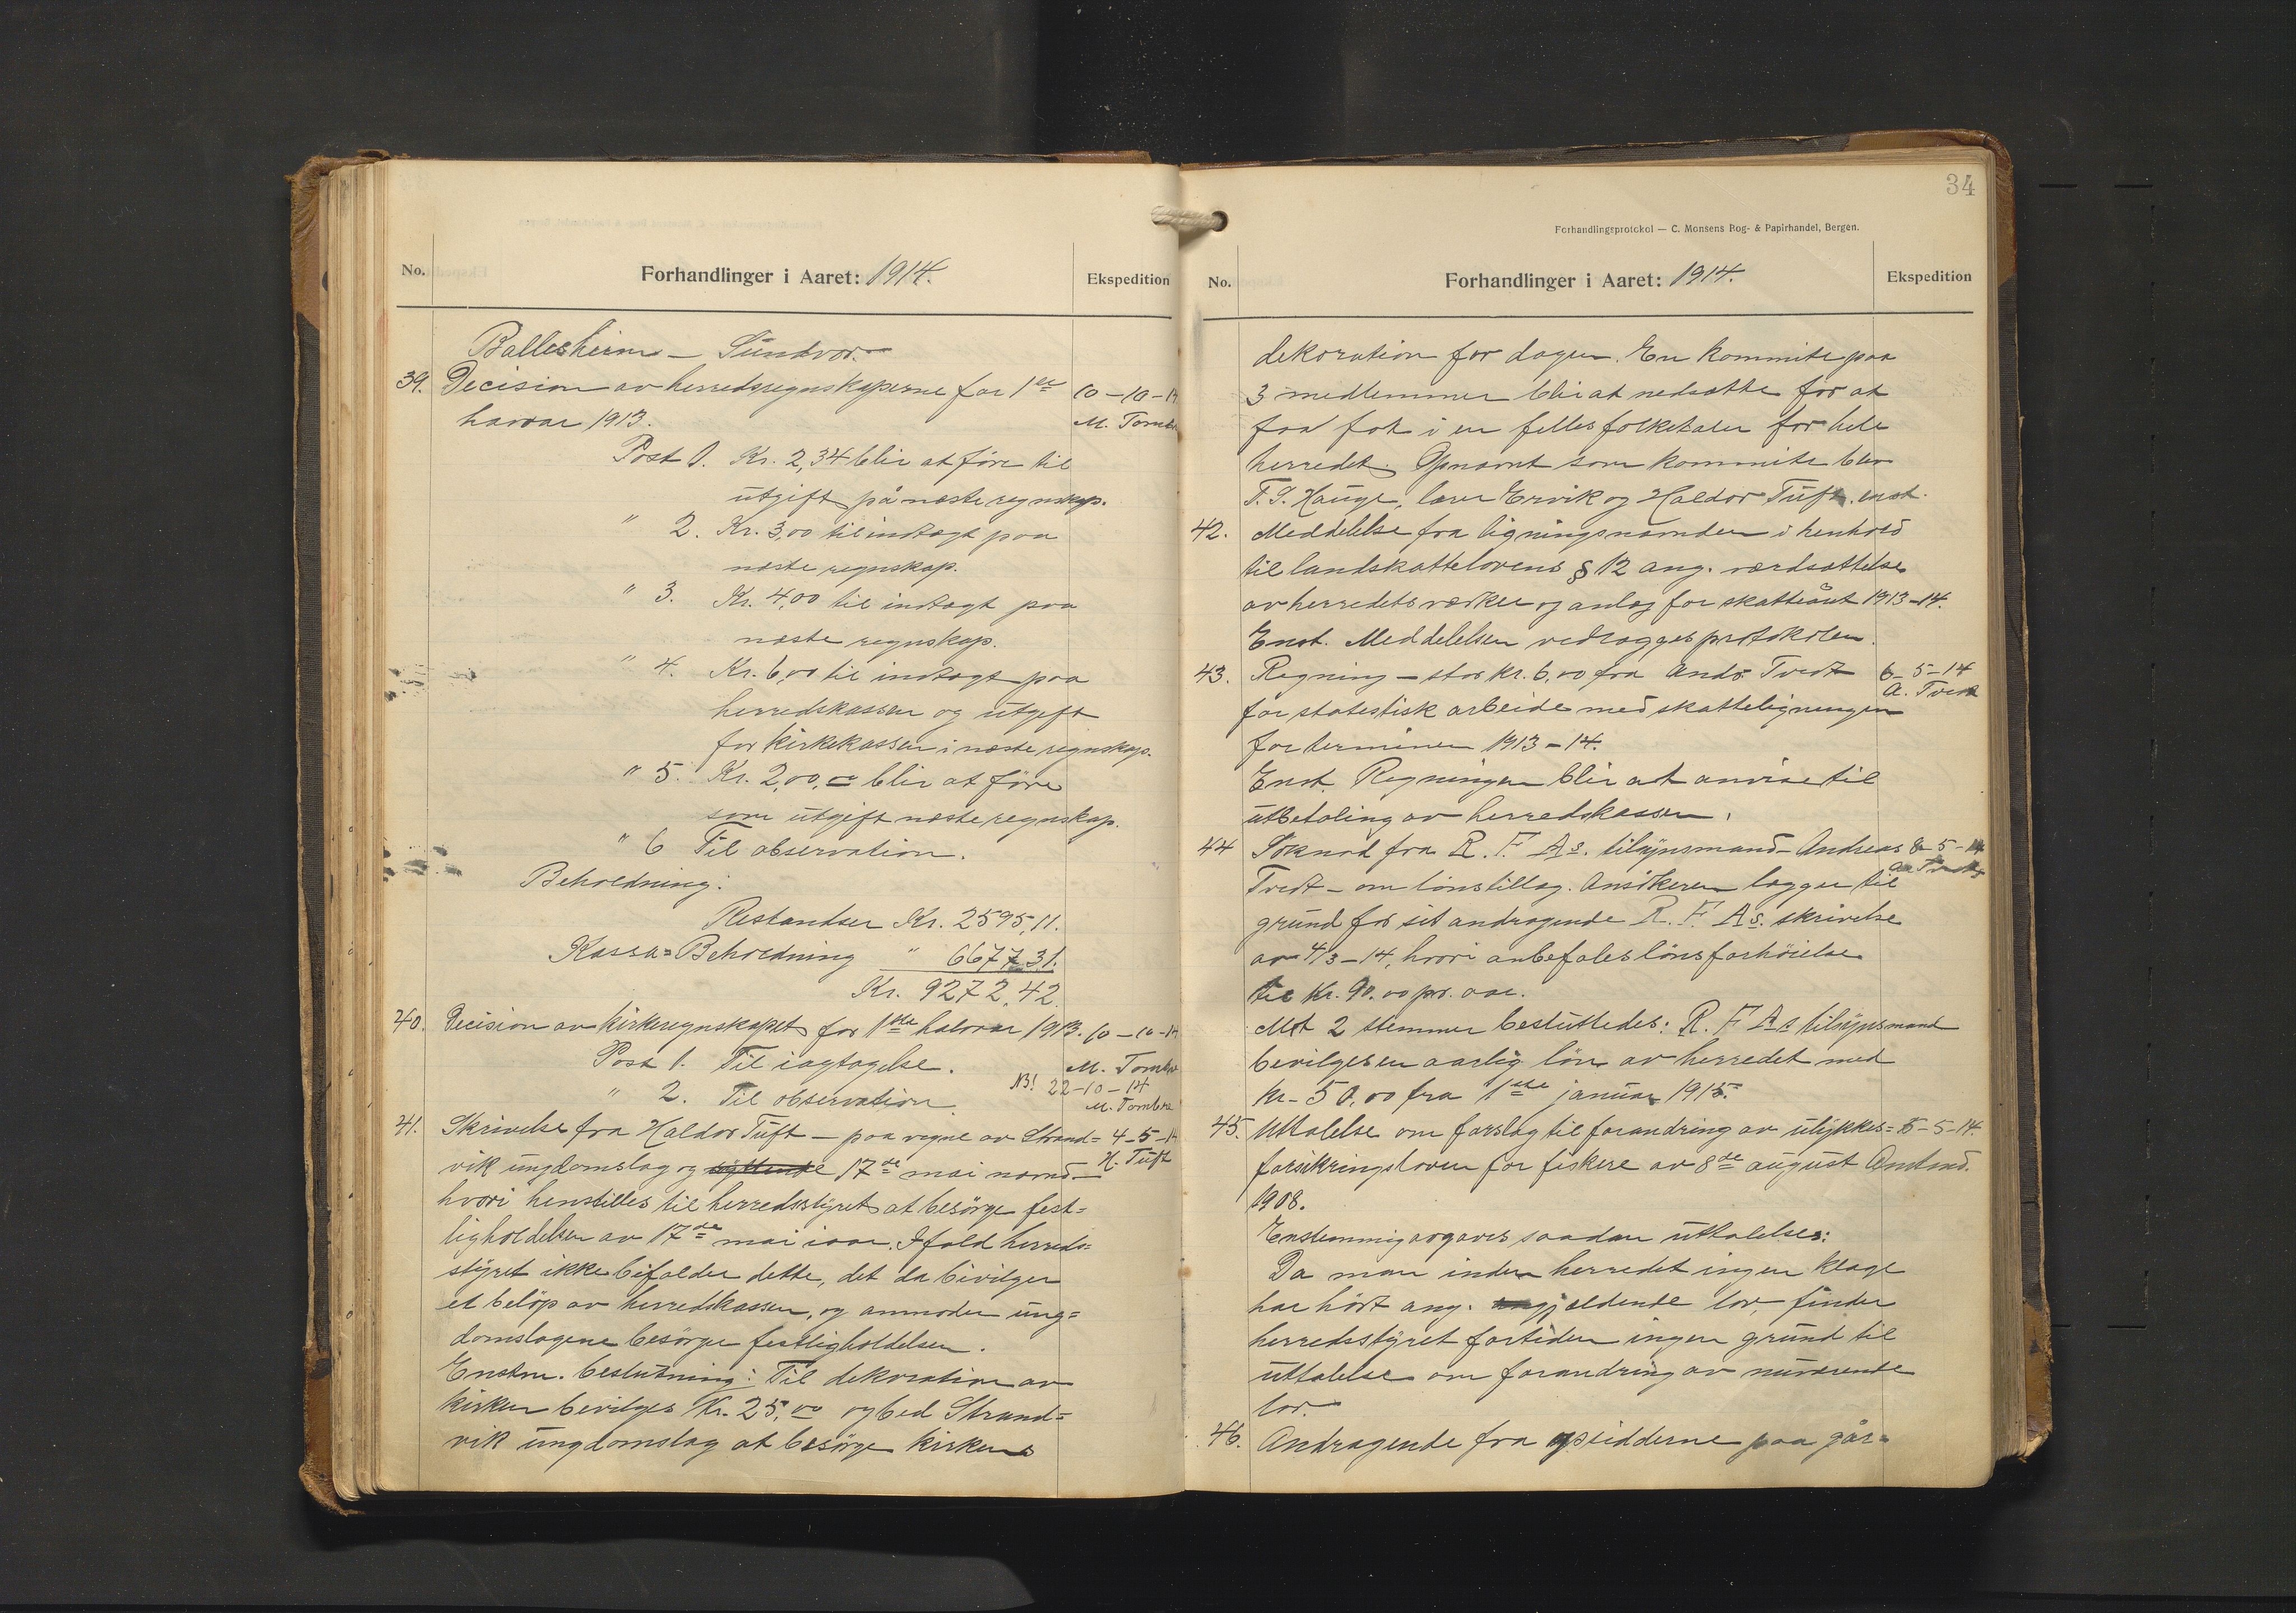 No.
Forhandlinger i Aaret: 1914.
Ekspedition
Ballesheim - Sundvor.
39. Decision av herredsregnskaperne for 1ste 10-10-14
havaar 1913. M. Tombre
Post 1. Kr. 2,34 blir at före til
utgift på næste regnskap.
" 2. Kr. 3,00 til indtægt paa
næste regnskap.
" 3. Kr. 4,00 til indtægt paa
næste regnskap.
" 4. Kr. 6,00 til indtægt paa
herredskassen og utgift
for kirkekassen i næste regnskap.
" 5. Kr. 2,00,00 blir at före
som utgift næste regnskap.
" 6 Til observation.
Beholdning:
Restandser Kr. 2595,11.
Kassa=Beholdning " 6677,31.
Kr. 9272,42.
40. Decision av kirkeregnskapet for 1ste halvaar 1913. 10-10-14
Post 1. Til iagtagelse. M. Tombre
" 2. Til observation. NB! 22-10-14
M. Tombre
41. Skrivelse fra Haldor Tuft - paa vegne av Strand= 4-5-14
vik ungdomslag og syttende 17de mai nævnd - H. Tuft
hvori henstilles til herredsstyret at besörge fest=
ligholdelsen av 17de mai iaar. Ifald herreds=
styret ikke bifalder dette, det da bevilger
et belöp av herredskassen, og anmoder ung=
domslagene besörge festligholdelsen.
Enstm. beslutning: Til dekoration av
kirken bevilges Kr. 25,00 og bed Strand=
vik ungdomslag at besörge kirkens
34
Forhandlingsprotokol — C. Monsens Bog- & Papirhandel, Bergen.
No.
Forhandlinger i Aaret: 1914.
Ekspedition
dekoration for dagen. En kommite paa
3 medlemmer blir at nedsætte for at
faa fat i en felles folketaler for hele
herredet. Opnævnt som kommite blev
T. S. Hauge, lærer Ervik og Haldor Tuft. enst.
42. Meddelelse fra ligningsnævnden i henhold
til landskattelovens § 12 ang. værdsættelse
av herredets værker og anlæg for skatteåret 1913-14.
Enst. Meddelelsen vedlægges protokolen.
43. Regning - stor kr. 6,00 fra Ands Tvedt 6-5-14
for statestisk arbeide med skatteligningen A. Tvedt
for terminen 1913-14.
Enst. Regningen blir at anvise til
utbetaling av herredskassen.
44 Söknad fra R. F. As. tilsynsmand - Andreas 8-5-14
Tvedt - om lönstillæg. Ansökeren lægger til A. Tvedt
grund for sit andragende R. F. As. skrivelse
av 4/3-14, hvori anbefales lönsforhöielse
til Kr. 90.00 pr. aar.
Mot 2 stemmer besluttedes: R. F. As tilsynsmand
bevilges en aarlig lön av herredet med
kr. 50,00 fra 1ste januar 1915.
45. Uttalelse om forslag til forandring av ulykkes= 5-5-14.
forsikringsloven for fiskere av 8de august Amtmd.
1908.
Enstemmig avgaves saadan uttalelse:
Da man inden herredet ingen klage
har hört ang. gjældende lov, finder
herredsstyret fortiden ingen grund til
uttalelse om forandring av nuværende
lov.
46. Andragende fra opsidderne paa går=